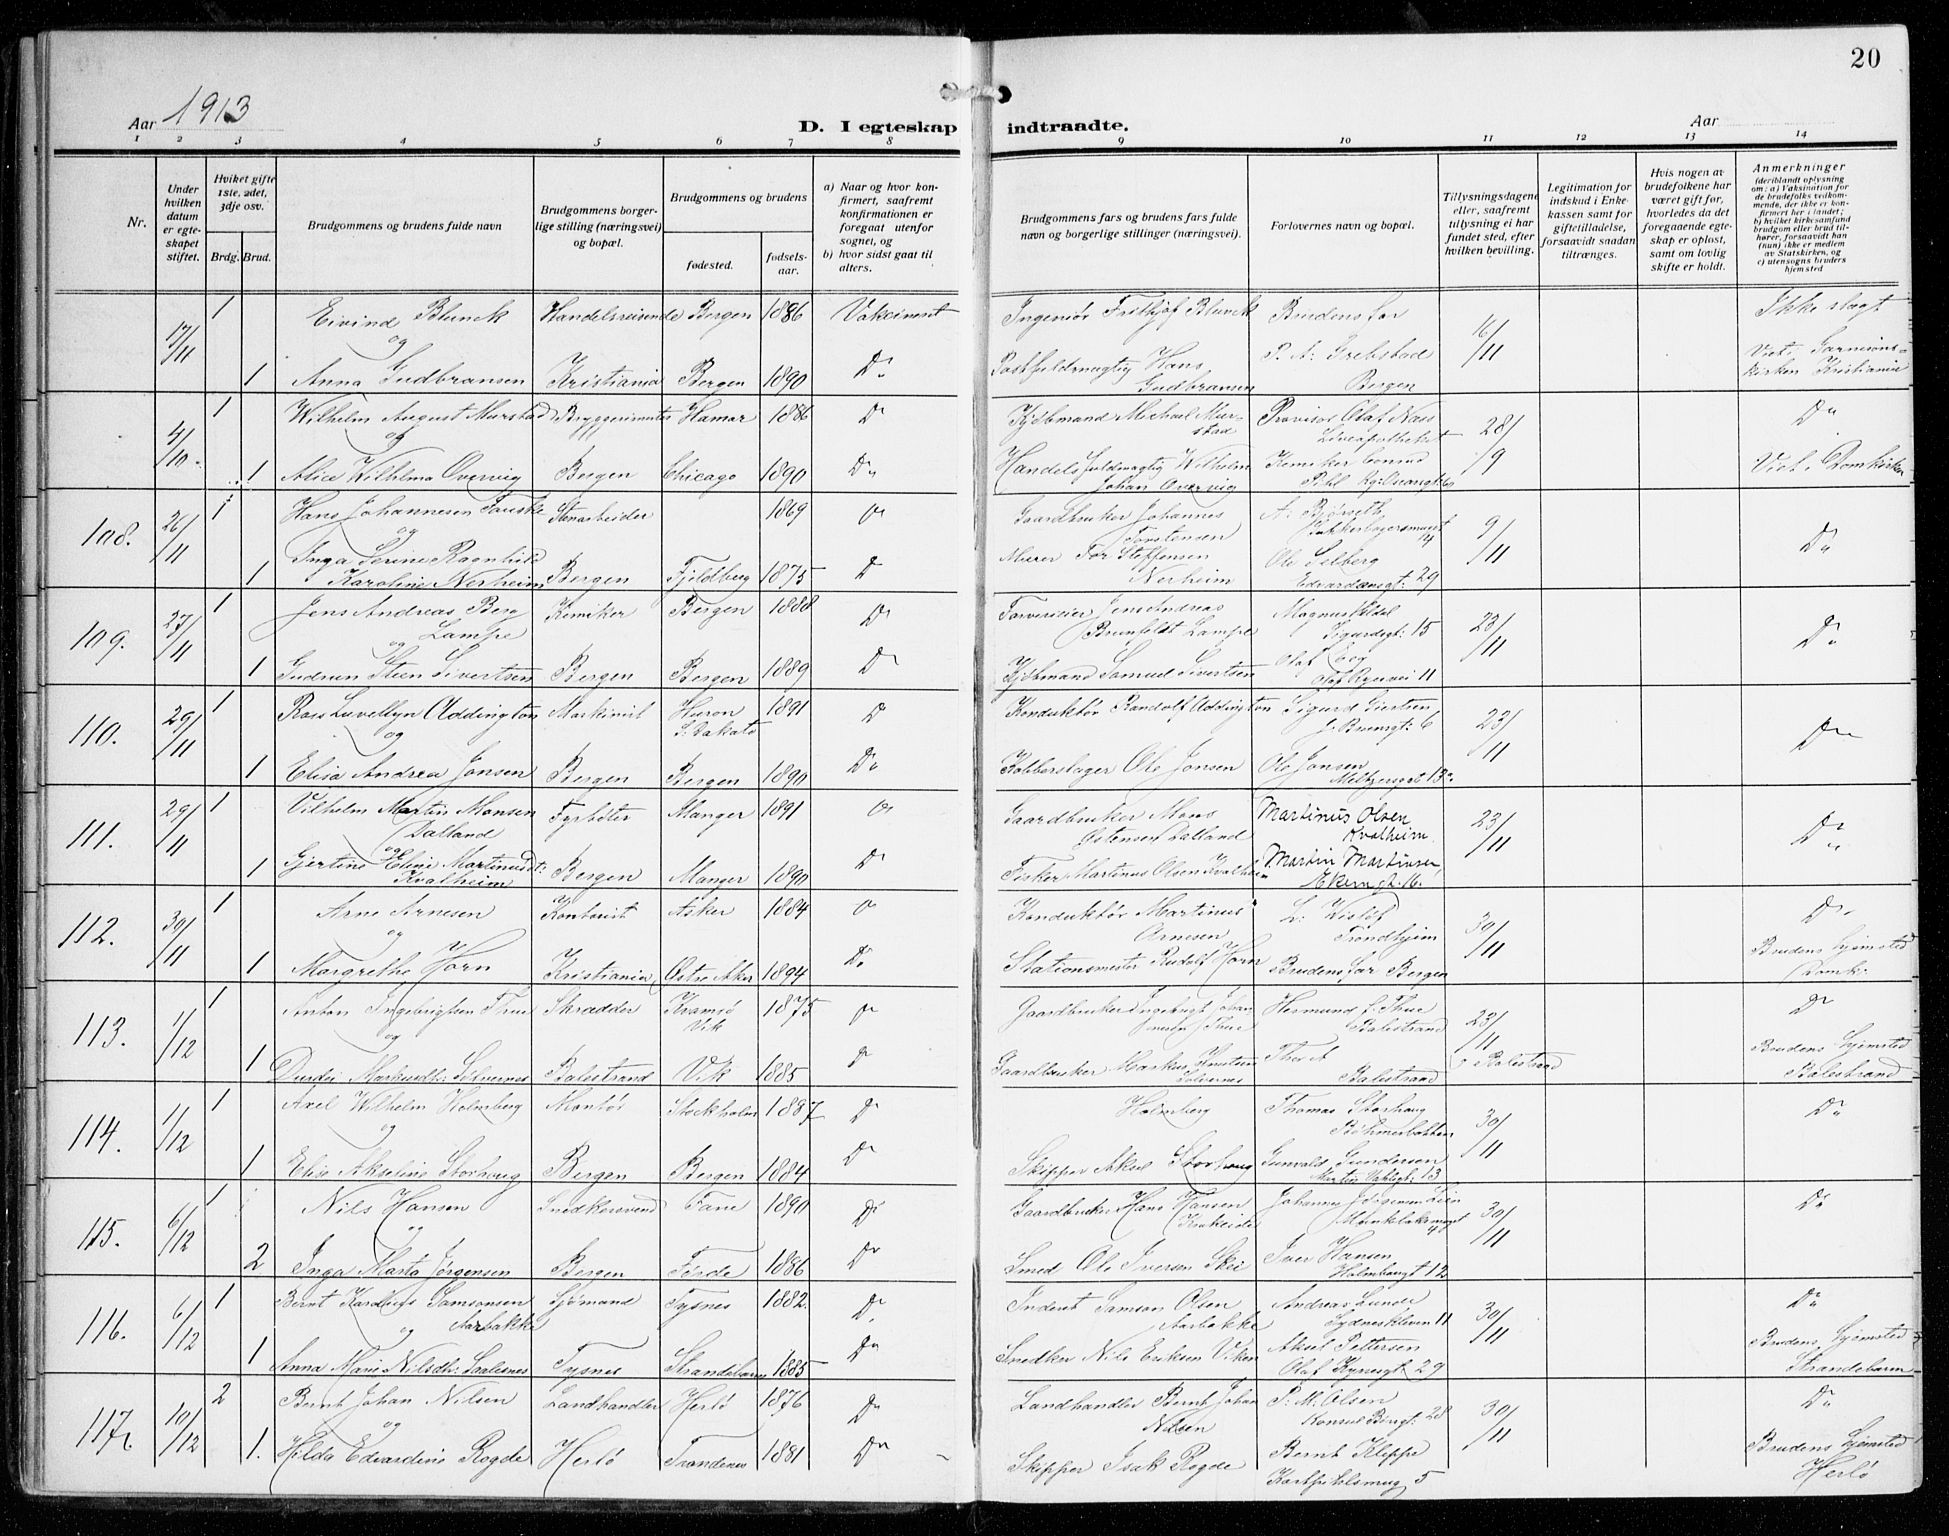 20
Aar 1913
D. I egteskap indtraadte.
Aar
1 2 3 4 5 6 7 8 9 10 11 12 13 14
Nr.
Under hvilken datum er egteskapet stiftet.
Hviket gifte 1ste, 2det, 3dje osv.
Brdg. Brud.
Brudgommens og brudens fulde navn
Brudgommens borgerlige stilling (næringsvei) og bopæl.
Brudgommens og brudens
fødested.
fødselsaar.
a) Naar og hvor konfirmert, saafremt konfirmationen er foregaat utenfor sognet, og
b) hvor sidst gaat til alters.
Brudgommens fars og brudens fars fulde navn og borgerlige stillinger (næringsvei).
Forlovernes navn og bopæl.
Tillysningsdagene eller, saafremt tillysning ei har fundet sted, efter hvilken bevilling.
Legitimation for indskud i Enkekassen samt for giftetilladelse, forsaavidt saadan tiltrænges.
Hvis nogen av brudefolkene har været gift før, hvorledes da det foregaaende egteskap er opløst, samt om lovlig skifte er holdt.
Anmerkninger (deriblandt oplysning om: a) Vaksination for de brudefolks velkommende, der ikke er konfirmert her i landet; b) hvilket kirkesamfund brudgom eller brud tilhører, forsaavidt han (hun) ikke er medlem av Statskirken, og c) utensogns bruders hjemsted
17/11 1 Eivind Blunck Handelsreisende Bergen 1886 Vaksinert Ingeniør Frithjof Blunck Brudens far 16/11 Ikke slægt
og
1 Anna Gudbransen Kristiania Bergen 1890 Do Postfuldmægtig Hans Gudbransen P. A. Grebstad Bergen Viet i Garnisonskirken Kristiania
4/10 1 Wilhelm August Murstad Hamar 1886 Do Kjøbmand Michael Murstad Provisor Olaf Næss Løveapotheket 28/9 Do
og
1 Alice Wilhelma Overvig Bergen Chicago 1890 Do Handelsfuldmægtig Wilhelm Johan Overvig Kemiker Conrad Pihl Viet i Domkirken
108. 26/11 1 Hans Johannesen Fauske Stenarbeider 1869 Do Gaardbruker Johannes Torstensen A. Bjørseth 9/11 Do
og
1 Inga Serine Ragnhild Karoline Nerheim Bergen Fjeldberg 1875 Do Murer Tor Steffensen Nerheim Ole Selberg Edvardsensgt: 29
109. 27/11 1 Jens Andreas Berg Lampe Kemiker Bergen 1888 Do Jens Andreas Brunfoldt Lampe Magnus Sigurdsgt: 15 23/11 Do
og
1 Gudrun Steen Sivertsen Bergen Bergen 1889 Do Kjøbmand Samuel Sivertsen Olaf Olaf Ryesvei 11
110. 29/11 1 Ross Luvellyn Addington Maskinist Huron S. Dakota 1891 Do Konduktør Randolf Addington Sigurd Giertsen J. Bruunsgt: 6 23/11 Do
og
1 Elisa Andrea Jonsen Bergen Bergen 1890 Do Kobberslager Ole Jonsen Ole Jonsen Meltzersgat 13a
111. 29/11 1 Vilhelm Martin Monsen Dalland Fyrbøter Manger 1891 Do Gaardbruker Mons Østensen Dalland Martinus Olsen Kvalheim. 23/11 Do
og
1 Gjertine Elene Martinusdt: Kvalheim Bergen Manger 1890 Do Fisker Martinus Olsen Kvalheim Martin Martinsen, Ekern gt. 16.
112. 30/11 1 Arne Arnesen Kontorist Asker 1884 Do Konduktør Martinus Arnesen L. Wisløf Trondhjem 30/11 Do
og
1 Margrethe Horn Kristiania Østre Aker 1894 Do Stationsmester Rudolf Horn Brudens far Bergen Brudens hjemsted Domk.
113. 1/12 1 Anton Ingebrigtsen Thue Skrædder Kvamsø Vik 1875 Do Gaardbruker Ingebrigt Johannesen Thue Hermund J. Thue Balestrand 23/11 i Balestrand Do
og
1 Durdei Markusdt: Balestrand Vik 1885 Do Gaardbruker Markus Knutsen Thor A Balestrand Brudens hjemsted Balestrand
114. 1/12 Axel Wilhelm Holmberg Montør Stockholm 1887 Do Holmberg Thomas Storhaug Bøhmerbakken 30/11 Do
og
1 Elise Akseline Storhaug Bergen Bergen 1884 Do Skipper Aksel Storhaug Gunvald Gundersen Martin Vahlsgt: 13
115. 6/12 1 Nils Hansen Snedkersvend Fane 1890 Do Gaardbruker Hans Hansen Johannes Jørgensen Lien 30/11 Do
og
2 Inga Marta Jørgensen Bergen Førde 1886 Do Smed Ole Iversen Skei Iver Hansen Holmbergt 12
116. 6/12 1 Bernt Samsonsen Aarbakke Sjømand Tysnes 1882. Do Inderst Samson Olsen Aarbakke Andreas Lunde Sydneskleven 11 30/11 Do
og
1 Anna Marie Nilsdt: Tysnes Strandebarm 1885 Do Snedker Nils Eriksen Viken Aksel Pettersen Olaf Kyrresgt 29 Brudens hjemsted Strandebarm
117. 10/12 2 Bernt Johan Nilsen Landhandler Herlø 1876 Do Landhandler Bernt Johan Nilsen P. M. Olsen Konsul Børsgt: 28 30/11 Do
og
1. Hilda Edvardine Rogde Herlø Trondenes 1881 Do Skipper Isak Rogde Bernt Kleppe 5 Brudens hjemsted Herlø